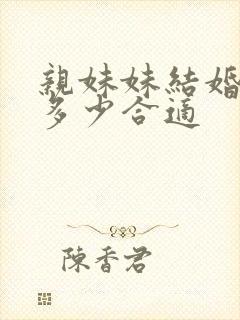 親妹妹結婚
多少合適
陳香君